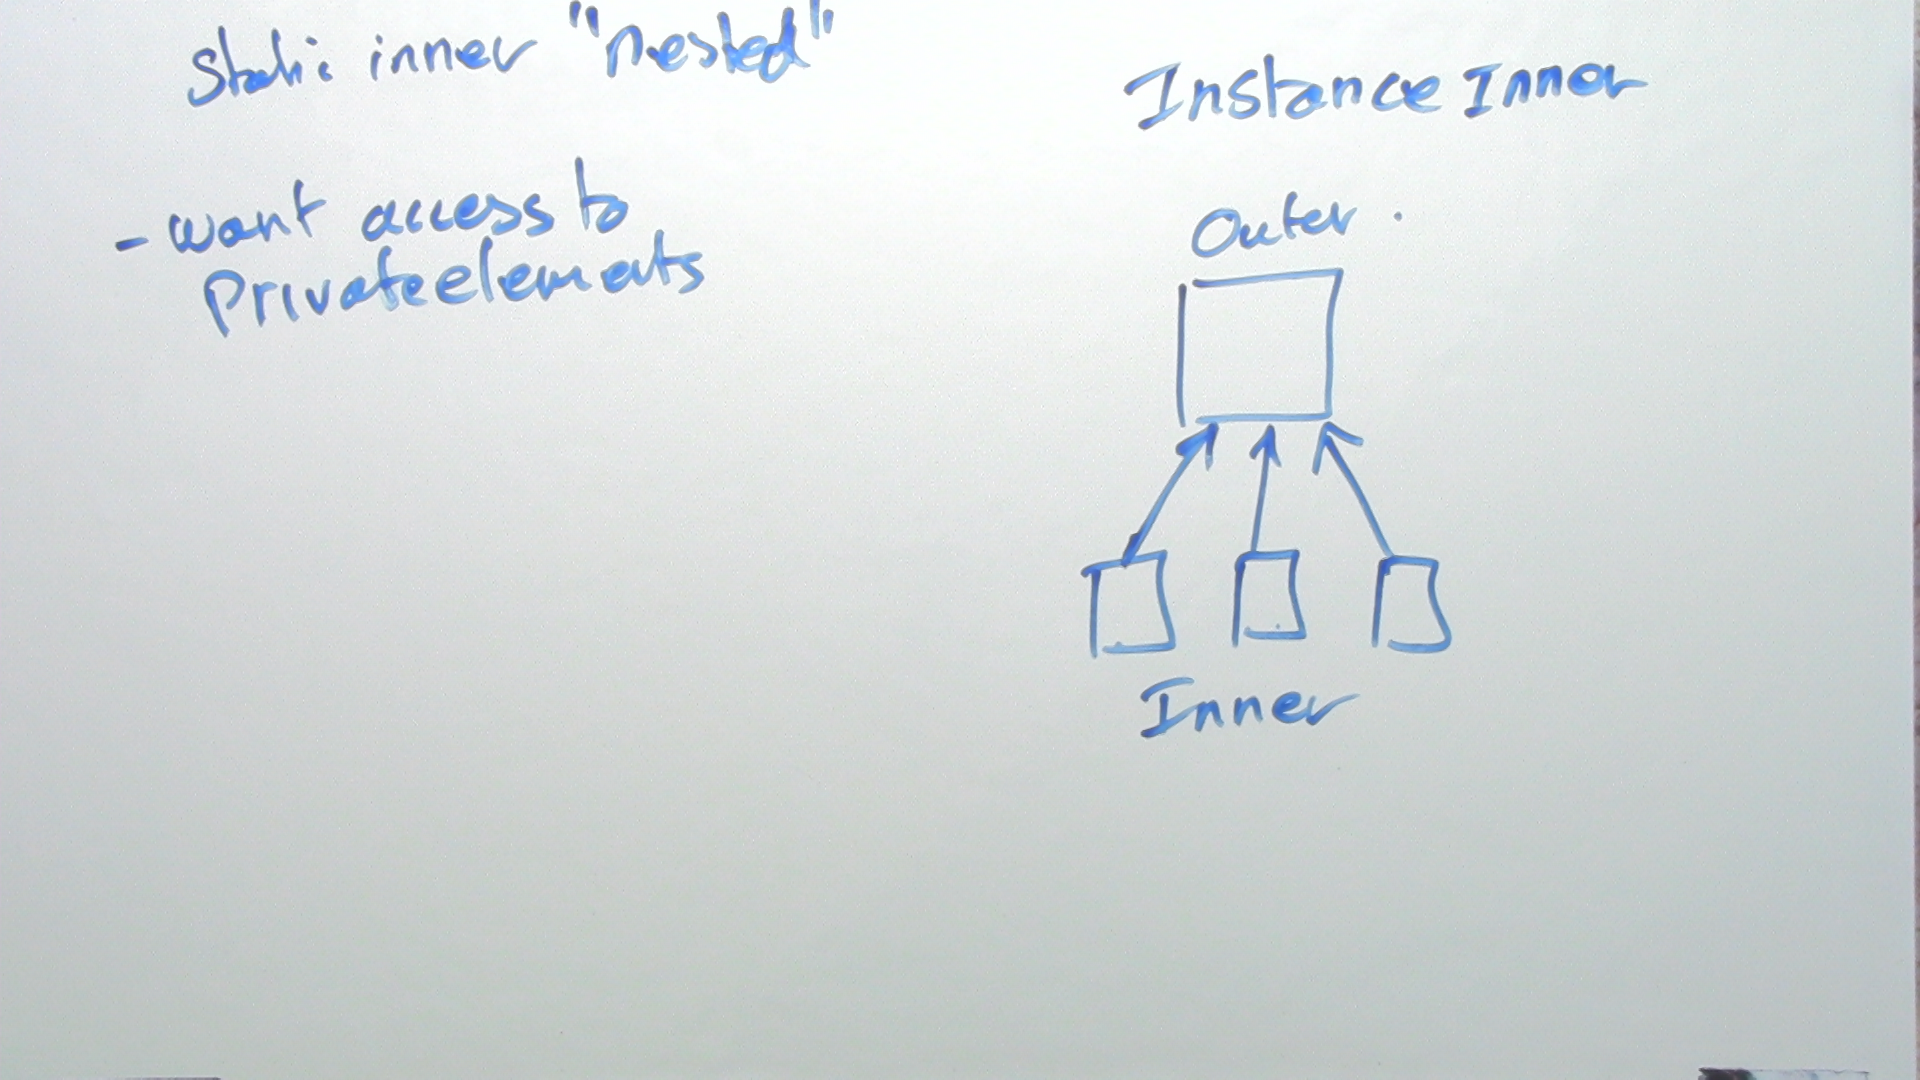 Static inner "nested"
- want access to
Private elements
Instance Inner
Outer.
Inner